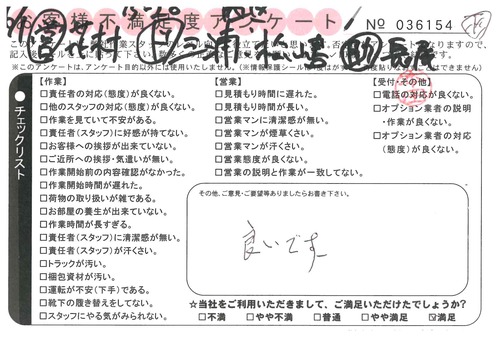 お客様不満足度アンケート
No 036154
※このアンケートは、アンケート目的以外には使用いたしません。
チェックリスト
【作業】
□責任者の対応(態度)が良くない。
□他のスタッフの対応(態度)が良くない。
□作業を見ていて不安がある。
□責任者(スタッフ)に好感が持てない。
□お客様への挨拶が出来ていない。
□ご近所への挨拶・気遣いが無い。
□作業開始前の内容確認がなかった。
□作業開始時間が遅れた。
□荷物の取り扱いが雑である。
□お部屋の養生が出来ていない。
□作業時間が長すぎる。
□責任者(スタッフ)に清潔感が無い。
□責任者(スタッフ)が汗くさい。
□トラックが汚い。
□梱包資材が汚い。
□運転が不安(下手)である。
□靴下の履き替えをしてない。
□スタッフにやる気がみられない。
【営業】
□見積もり時間に遅れた。
□見積もり時間が長い。
□営業マンに清潔感が無い。
□営業マンが煙草くさい。
□営業マンが汗くさい。
□営業態度が良くない。
□営業の説明と作業が一致してない。
【受付・その他】
□電話の対応が良くない。
□オプション業者の説明・作業が良くない。
□オプション業者の対応(態度)が良くない。
その他、ご意見・ご要望等ありましたらお書き下さい。
良いです
☆当社をご利用いただきまして、ご満足いただけたでしょうか?
□不満 □やや不満 □普通 □やや満足 ☑満足